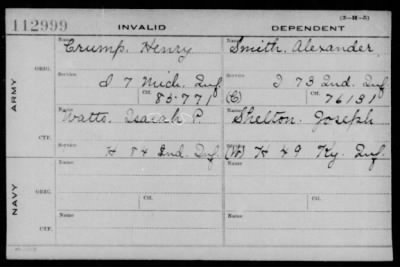 112999 INVALID DEPENDENT (3-H-5)
Name Name
Crump, Henry Smith, Alexander
ORIG.
Service Service
I 7 Mich. Inf. I 73 Ind. Inf.
Ctf. Ctf.
83.771 (C) 76131
ARMY
Name Name
Watts, Isaiah P. Shelton, Joseph
CTF.
Service Service
H 84 Ind. Inf. (W) H 49 Ky. Inf.
NAVY
ORIG.
Name Ctf. Name Ctf.
CTF.
Name Name